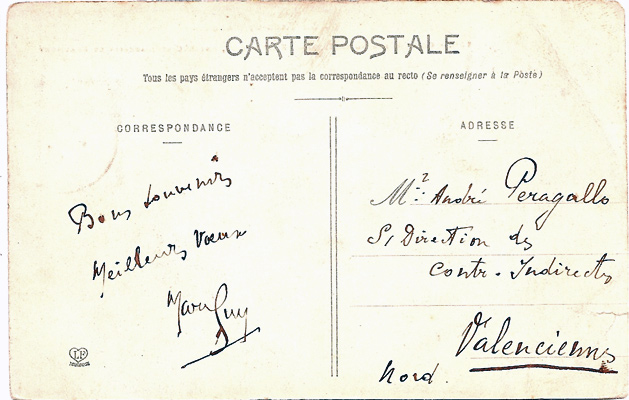 CARTE POSTALE
Tous les pays étrangers n'acceptent pas la correspondance au recto (Se renseigner à la Poste)
CORRESPONDANCE
Bons souvenirs
Meilleurs Vœux
ADRESSE
André Peragallo
S/ Direction des
Contr. Indirectes
Valenciennes
Nord.
LF